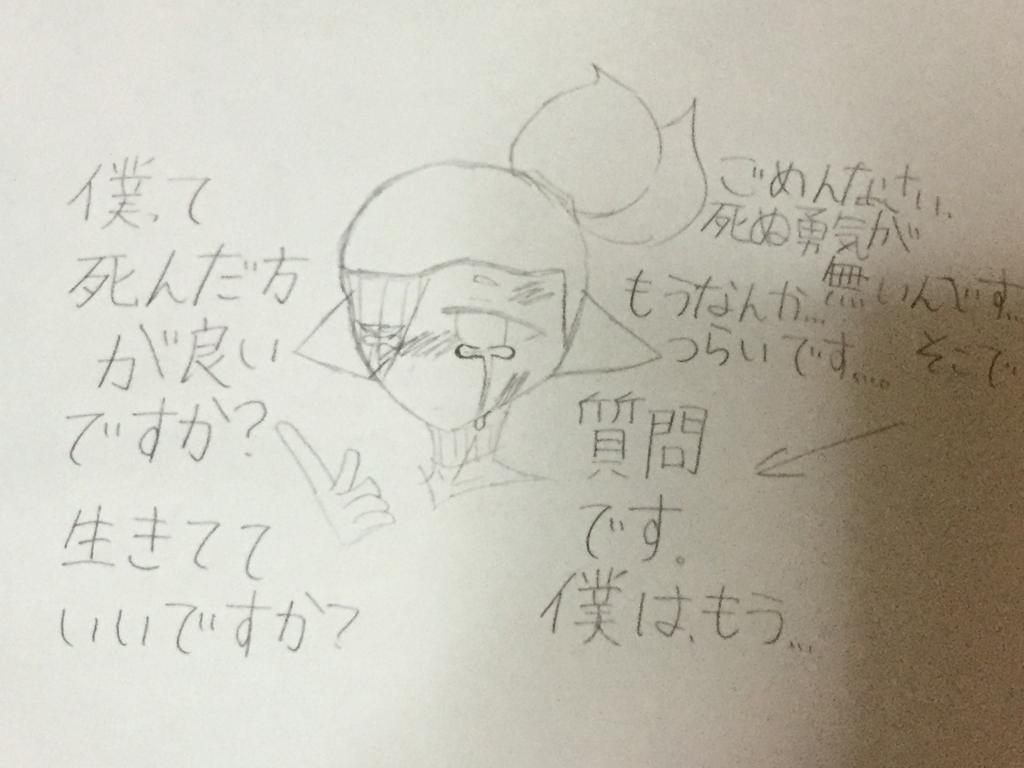 僕って
死んだ方
が良い
ですか?
生きてて
いいですか?
ごめんなさい、
死ぬ勇気が
無いんです…
もうなんか…
つらいです…。 そこで
質問
です。
僕は、もう…